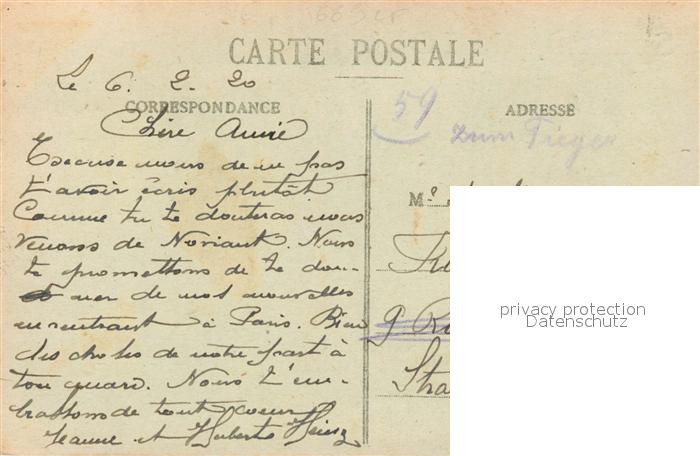 CARTE POSTALE
Le 6. 2. 20
CORRESPONDANCE
Chère Amie
Excuse nous de ne pas
t'avoir écris plutôt
Comme tu te douteras nous
venons de Noriant. Nous
te promettons de te don-
ner de nos nouvelles
en rentrant à Paris. Bien
des choses de notre part à
ton quard. Nous t'em-
brassons de tout coeur
Jeanne et Huberte
59
ADRESSE
zum Tieger
M
9 Ru
Stra
privacy protection
Datenschutz